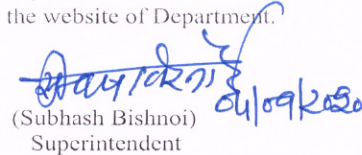 the website of Department.
04/09/2020
(Subhash Bishnoi)
Superintendent